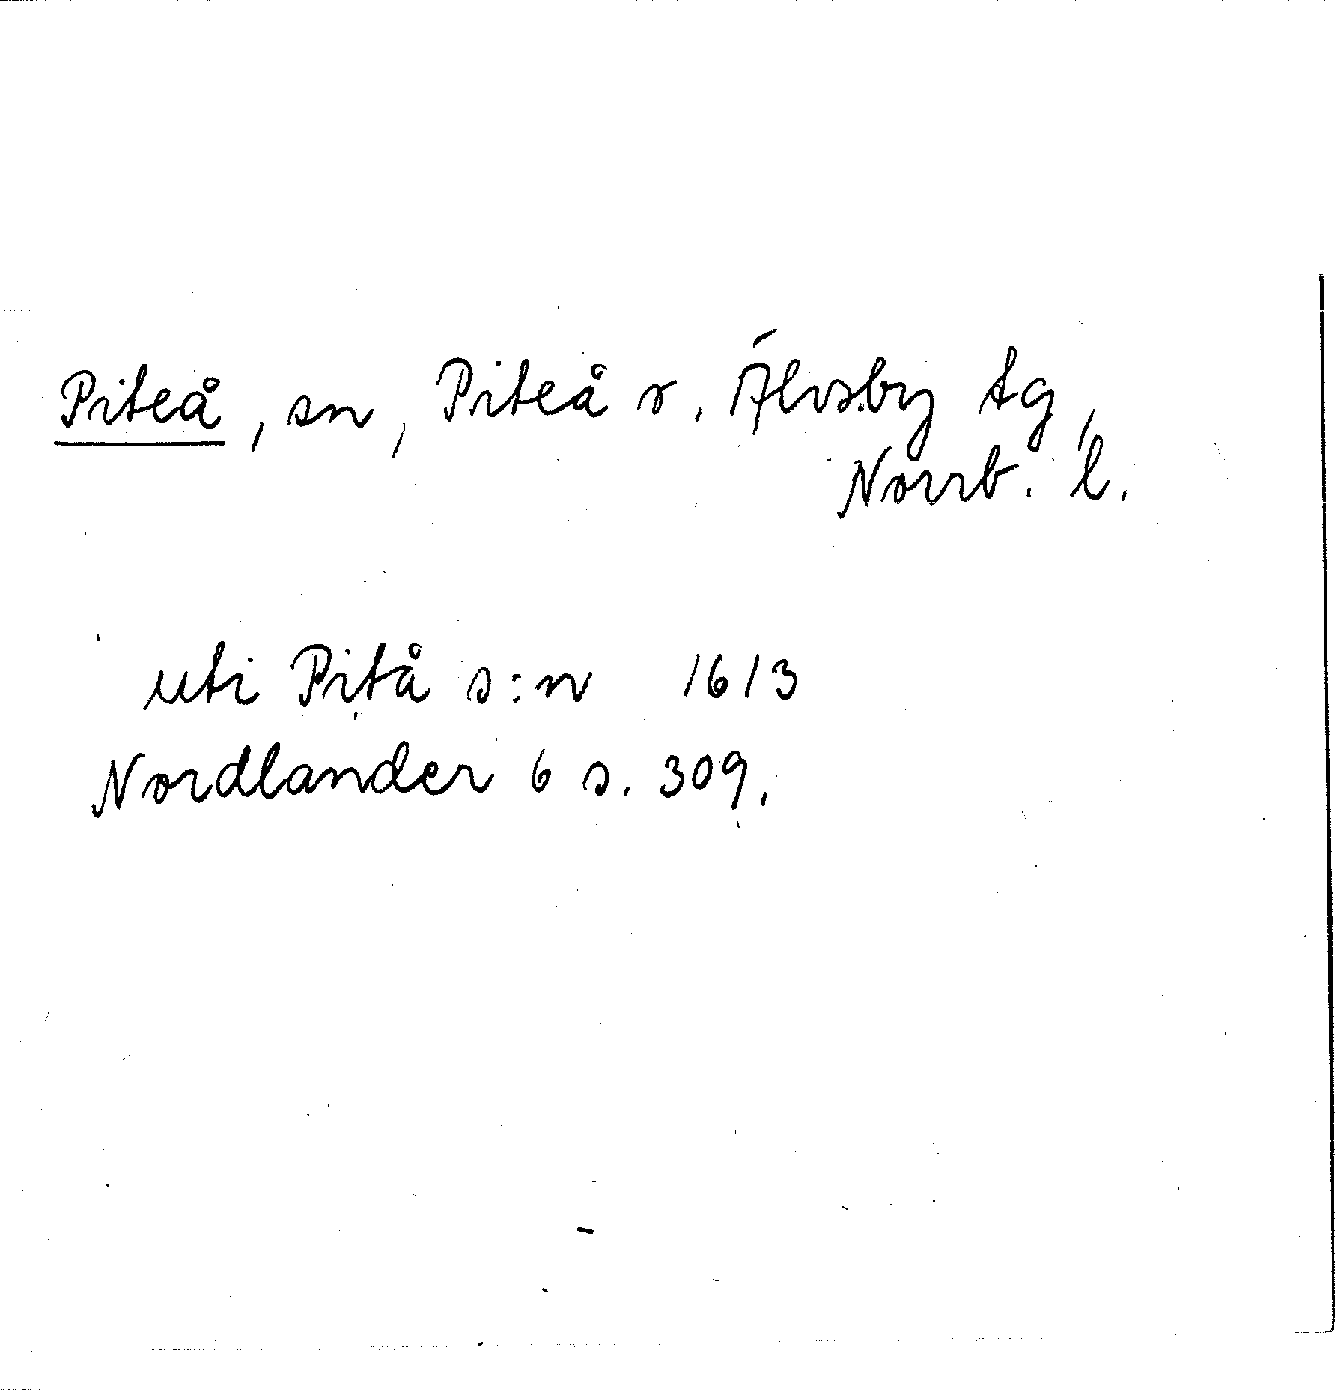 Piteå, sn, Piteå o. Älvsby tg,
Norrb. l.
uti Pitå s:n 1613
Nordlander 6 s. 309.